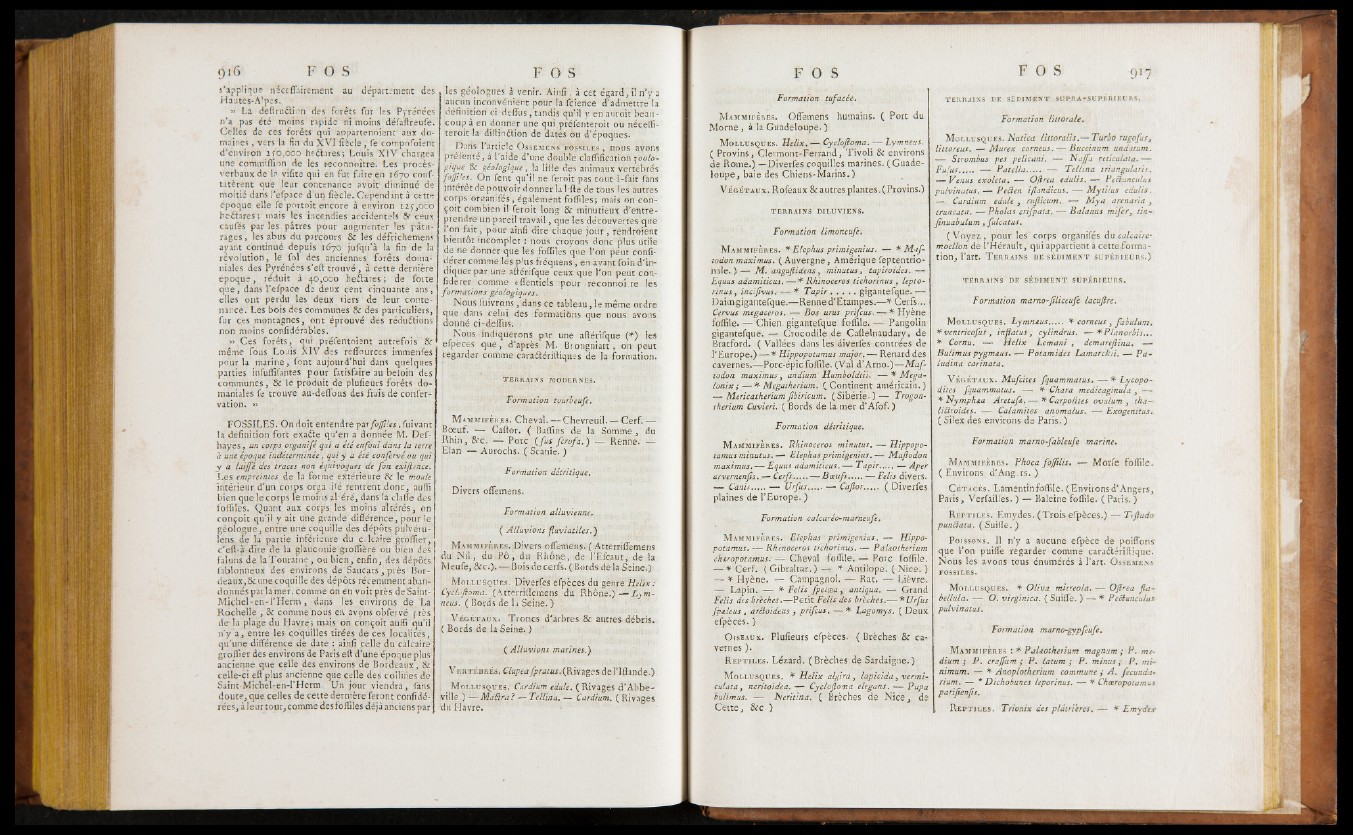 916 F O S
s'applique nécessairement au département des
Hautes-Alpes.
» La destruction des forêts sur les Pyrénées
n'a pas été moins rapide ni moins désastreuse.
Celles de ces forêts qui appartenoient aux do-
maines, vers la fin du XVI siècle, se composoient
d'environ 250,000 hectares; Louis XIV chargea
une commission de les reconnoître. Les procès-
verbaux de la visite qui en fut faite en 1670 cons-
tatèrent que leur contenance avoit diminué de
moitié dans l'espace d'un siècle. Cependant à cette
époque elle se portoit encore à environ 125,000
hectares; mais les incendies accidentels & ceux
causés par les pâtres pour augmenter les pâtu-
rages, les abus du parcours & les défrichemens
ayant continué depuis 1670 jusqu'à la fin de la
révolution, le sol des anciennes forêts doma-
niales des Pyrénées s'est trouvé, à cette dernière
époque, réduit à 40,000 hectares; de sorte
que, dans l'espace de deux cent cinquante ans,
elles ont perdu les deux tiers de leur conte-
nance. Les bois des communes & des particuliers,
sur ces montagnes, ont éprouvé des réductions
non moins considérables.
» Ces forêts, qui présentoient autrefois &
même sous Louis XIV des ressources immenses
pour la marine, sont aujourd'hui dans quelques
parties insuffisantes pour satisfaire au besoin des
communes, & le produit de plusieurs forêts do-
maniales se trouve au-dessous des frais de conser-
vation. »
FOSSILES. On doit entendre par fossiles, suivant
la définition fort exacte qu'en a donnée M. Des-
hayes, un corps organisé qui a été enfoui dans la terre
à une époque indéterminée, qui y a été conservé ou qui
y a laissé des traces non équivoques de son existence.
Les empreintes de la forme extérieure & le moule
intérieur d'un corps organisé rentrent donc, aussi
bien que le corps le moins altéré, dans la classe des
fossiles. Quant aux corps les moins altérés, on
conçoit qu'il y ait une grande différence, pour le
géologue, entre une coquille des dépôts pulvéru-
lens de la partie inférieure du calcaire grossier,
c'est-à dire de la glauconie grossière ou bien des
faluns de la Touraine, ou bien, enfin, des dépôts
sablonneux des environs de Saucats, près Bor-
deaux, & une coquille des dépôts récemment aban-
donnés par la mer, comme on en voit près de Saint-
Michel-en-l'Herm, dans les environs de La
Rochelle, & comme nous en avons observé près
de la plage du Havre; mais on conçoit aussi qu'il
n'y a, entre les coquilles tirées de ces localités,
qu'une différence de date: ainsi celle du calcaire
grossier des environs de Paris est d'une époque plus
ancienne que celle des environs de Bordeaux, &
celle-ci est plus ancienne que celle des collines de
Saint-Michel-en-l'Herm. Un jour viendra, sans
doute, que celles de cette dernière seront considé-
rées, à leur tour, comme des fossiles déjà anciens par
F O S
les géologues à venir. Ainsi, à cet égard, il n'y a
aucun inconvénient pour la science d'admettre la
définition ci-dessus, tandis qu'il y en auroit beau-
coup à en donner une qui présenteroit ou nécessi-
teroit la distinction de dates ou d'époques.
Dans l'article OSSEMENS FOSSILES, nous avons
présenté, à l'aide d'une double classification zoolo-
gique & géologique, la liste des animaux vertébrés
fossiles. On sent qu'il ne seroit pas tout-à-fait sans
intérêt de pouvoir donner la liste de tous les autres
corps organisés, également fossiles; mais on con-
çoit combien il seroit long & minutieux d'entre-
prendre un pareil travail, que les découvertes que
l'on fait, pour ainsi dire chaque jour, rendroient
bientôt incomplet: nous croyons donc plus utile
de ne donner que les fossiles que l'on peut consi-
dérer comme les plus fréquens, en ayant soin d'in-
diquer par une astérisque ceux que l'on peut con-
sidérer comme essentiels pour reconnoître les
formations géologiques.
Nous suivrons, dans ce tableau, le même ordre
que dans celui des formations que nous avons
donné ci-dessus.
Nous indiquerons par une astérisque (*) les
espèces que, d'après M. Brongniart, on peut
regarder comme caractéristiques de la formation.
TERRAINS MODERNES.
Formation tourbeuse.
MAMMIFÈRES. Cheval. — Chevreuil. — Cerf. —
Bœuf. — Castor. ( Bassins de la Somme, du
Rhin, &c. — Porc (sus scrofa.) — Renne. —
Elan — Aurochs. ( Scanie. )
Formation détritique.
Divers ossemens.
Formation alluvienne.
( Alluvions fluviatiles.)
MAMMIFÈRES. Divers ossemens. ( Atterrissemens
du Nil, du Pô, du Rhône, de l'Escaut, de la
Meuse, &c.). — Bois de cerfs. (Bords de la Seine.)
MOLLUSQUES. Diverses espèces du genre Helix:
Cyclostoma. (Atterrissemens du Rhône.) — Lym-
neus. ( Bords de la Seine. )
VÉGÉTAUX. Troncs d'arbres & autres débris.
( Bords de la Seine. )
( Alluvions marines.)
VERTÉBRÉS. Clupea spratus. (Rivages de l'Islande.)
MOLLUSQUES. Cardium edule. ( Rivages d'Abbe-
ville ) — Mactra? — Tellina. — Cardium. ( Rivages
du Havre.
F O S
Formation tufacée.
MAMMIFÈRES. Ossemens humains. ( Port du
Morne, à la Guadeloupe.)
MOLLUSQUES. Helix. — Cyclostoma. — Lymneus.
( Provins, Clermont-Ferrand, Tivoli & environs
de Rome.) — Diverses coquilles marines. (Guade-
loupe, baie des Chiens-Marins.)
VÉGÉTAUX. Roseaux & autres plantes. (Provins.)
TERRAINS DILUVIENS.
Formation limoneuse.
MAMMIFÈRES. * Elephas primigenius. — * Mas-
todon maximus. ( Auvergne, Amérique septentrio-
nale. ) — M. angustidens, minutus, tapiroides. —
Equus adamiticus. — * Rhinoceros tichorinus, lepto-
rinus, incisivus. — * Tapir..... gigantesque. —
Daim gigantesque. — Renne d'Etampes. — * Cerfs...
Cervus megaceros. — Bos urus priscus. — * Hyène
fossile. — Chien gigantesque fossile. — Pangolin
gigantesque. — Crocodile de Castelnaudary, de
Bratford. ( Vallées dans les diverses contrées de
l'Europe.) — * Hippopotamus major. — Renard des
cavernes. — Porc-épic fossile. (Val d'Arno.) — Mas-
todon maximus, andium Humboldtii. — * Mega-
lonix; — * Megatherium. ( Continent américain. )
— Mericatherium sibiricum. ( Siberie.) — Trogon-
therium Cuvieri. ( Bords de la mer d'Asof.)
Formation détritique.
MAMMIFÈRES. Rhinoceros minutus. — Hippopo-
tamus minutus. — Elephas primigenius. — Mastodon
maximus. — Equus adamiticus. — Tapir..... — Aper
arvernensis. — Cerfs..... — Bœufs..... — Felis divers.
— Canis..... — Ursus..... — Castor..... ( Diverses
plaines de l'Europe. )
Formation calcaréo-marneuse.
MAMMIFÈRES. Elephas primigenius. — Hippo-
potamus. — Rhinoceros tichorinus. — Palæotherium
chéropotamus. — Cheval fossile. — Porc fossile.
— * Cerf. ( Gibraltar. ) — * Antilope. ( Nice. )
— * Hyène. — Campagnol. — Rat. — Lièvre.
— Lapin. — * Felis spelæa, antiqua. — Grand
Felis des brèches. — Petit Felis des brèches. — * Ursus
spelæus, arctoideus, priscus. — * Lagomys. ( Deux
espèces. )
OISEAUX. Plusieurs espèces. ( Brèches & ca-
vernes ).
REPTILES. Lézard. (Brèches de Sardaigne.)
MOLLUSQUES. * Helix algira, lapicida, vermi-
culata, neritoidea. — Cyclostoma elegans. — Pupa
bulimus. — Neritina. ( Brèches de Nice, de
Cette, &c )
F O S 917
TERRAINS DE SÉDIMENT SUPRA-SUPÉRIEURS.
Formation littorale.
MOLLUSQUES. Natica littoralis. — Turbo rugosus,
littoreus. — Murex corneus. — Buccinum undatum.
— Strombus pes pelicani. — Nassa reticulata. —
Fusus..... — Patella..... — Tellina triangularis.
— Venus exoleta. — Ostrea edulis. — Pectunculus
pulvinatus. — Pecten islandicus. — Mytilus edulis.
— Cardium edule, rusticum. — Mya arenaria,
truncata. — Pholas crispata. — Balanus miser, tin-
tinnabulum, sulcatus.
( Voyez, pour les corps organisés du calcaire-
moellon de l'Hérault, qui appartient à cette forma-
tion, l'art. TERRAINS DE SÉDIMENT SUPÉRIEURS.)
TERRAINS DE SÉDIMENT SUPÉRIEURS.
Formation marno-siliceuse lacustre.
MOLLUSQUES. Lymneus..... * corneus, fabulum,
* ventricosus, inflatus, cylindrus. — * Planorbis...
* Cornu. — Helix Lemani, demarestina. —
Bulimus pygmaus. — Potamides Lamarckii. — Pa-
ludina carinata.
VÉGÉTAUX. Muscites squammatus. — * Lycopo-
dites squammatus. — * Chara medicaginula, —
* Nymphea Aretusa. — * Carpolites ovulum, tha-
lictroides. — Calamites anomalus. — Exogenitus.
( Silex des environs de Paris. )
Formation marno-sableuse marine.
MAMMIFÈRES. Phoca fossilis. — Morse fossile.
( Environs d'Angers. )
CÉTACÉS. Lamentin fossile. (Environs d'Angers,
Paris, Versailles. ) — Baleine fossile. ( Paris. )
REPTILES. Emydes. (Trois espèces.) — Testudo
punctata. ( Suisse. )
POISSONS. Il n'y a aucune espèce de poissons
que l'on puisse regarder comme caractéristique.
Nous les avons tous énumérés à l'art. OSSEMENS
FOSSILES.
MOLLUSQUES. * Oliva mitreola. — Ostrea fla-
bellula. — O. virginica. ( Suisse. ) — * Pectunculus
pulvinatus.
Formation marno-gypseuse.
MAMMIFÈRES: * Palæotherium magnum; P. me-
dium; P. crassum; P. latum; P. minus; P. mi-
nimum. — * Anoplotherium commune; A. secunda-
rium. — * Dichobunes leporinus. — * Chæropotamus
parisiensis.
REPTILES. Trionix des plâtrières. — * Emydes